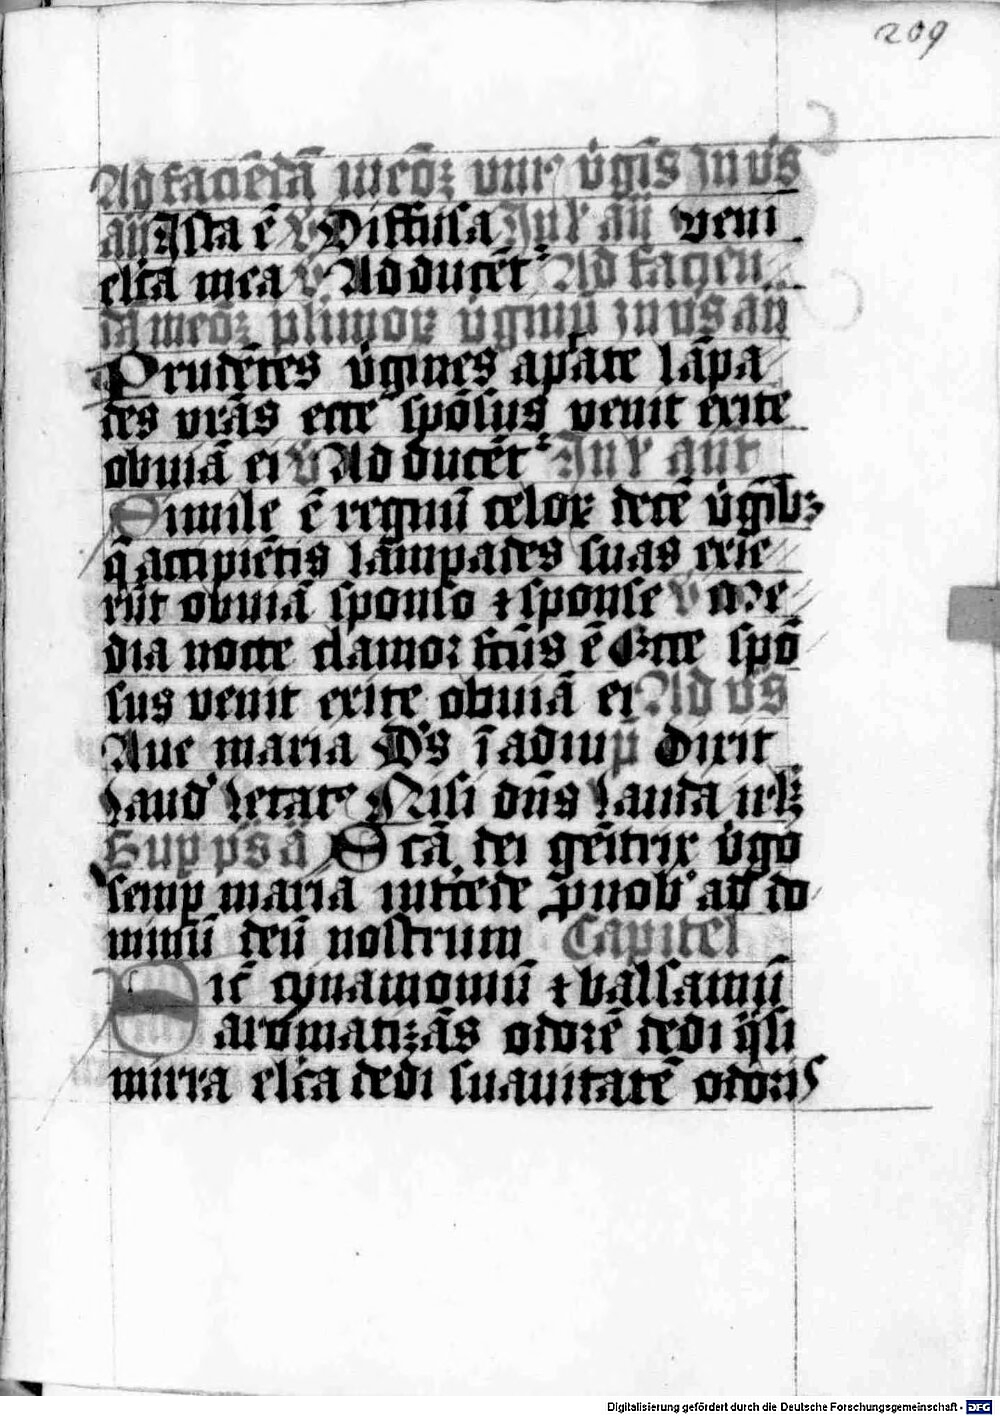 209
Ad faciēdā meōꝝ vniꝰ v̓gīs Jn vs̓
añ Jsta ē ℣ Diffusa Jn lꝰ añ veni
elcā mea ℣ Adducēt᷑ Ad facien
dā meōꝝ pl̓imoꝝ v̓ginū in vs̓ añ
Prudētes v̓gines aptate lāpa
des vrās ecce spōsus venit exite
obuiā ei ℣ Adducēt᷑ Jn lꝰ ant
Simile ē regnū celoꝝ decē v̓gībꝫ
q̄ accipiētis lāmpades suas exie
rūt obuiā sponso ⁊ sponse ℣ Me
dia nocte clamor fc̄us ē Ecce spō
sus venit exite obuiā ei Ad vs̓
Aue maria Ds̓ ī adiu p̄ Dixit
laud̓ letatꝰ Nisi dn̄s lauda irlꝫ
Sup ps̓ ā Scā dei gēitrix v̓go
semp maria int̓cede p̱ nob̓ ad do
minū deū nostrum Capitel
Sic̄ cynamomū ⁊ balsamū
aromatizās odorē dedi q̄si
mirra elcā dedi suauitatē odoris
Digitalisierung gefördert durch die Deutsche Forschungsgemeinschaft - DFG